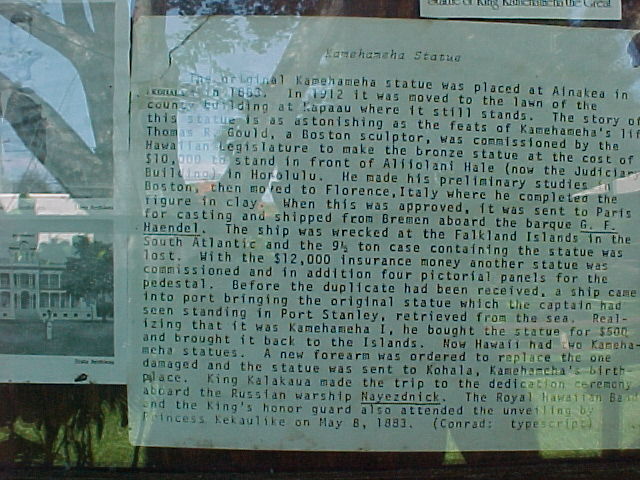 Statue of King Kamehameha the Great
Kamehameha Statue
The original Kamehameha statue was placed at Ainakea in
KOHALA in 1883. In 1912 it was moved to the lawn of the
county building at Kapaau where it still stands. The story of
this statue is as astonishing as the feats of Kamehameha's lif
Thomas R. Gould, a Boston sculptor, was commissioned by the
Hawaiian Legislature to make the bronze statue at the cost of
$10,000 to stand in front of Aliiolani Hale (now the Judiciar
Building) in Honolulu. He made his preliminary studies in
Boston, then moved to Florence, Italy where he completed the
figure in clay. When this was approved, it was sent to Paris
for casting and shipped from Bremen aboard the barque G. F.
Haendel. The ship was wrecked at the Falkland Islands in the
South Atlantic and the 9½ ton case containing the statue was
lost. With the $12,000 insurance money another statue was
commissioned and in addition four pictorial panels for the
pedestal. Before the duplicate had been received, a ship came
into port bringing the original statue which the captain had
seen standing in Port Stanley, retrieved from the sea. Real-
izing that it was Kamehameha I, he bought the statue for $500
and brought it back to the Islands. Now Hawaii had two Kameha-
meha statues. A new forearm was ordered to replace the one
damaged and the statue was sent to Kohala, Kamehameha's birth-
place. King Kalakaua made the trip to the dedication ceremony
aboard the Russian warship Nayezdnick. The Royal Hawaiian Band
and the King's honor guard also attended the unveiling by
Princess Kekaulike on May 8, 1883. (Conrad: typescript)
State Archives
State Archives